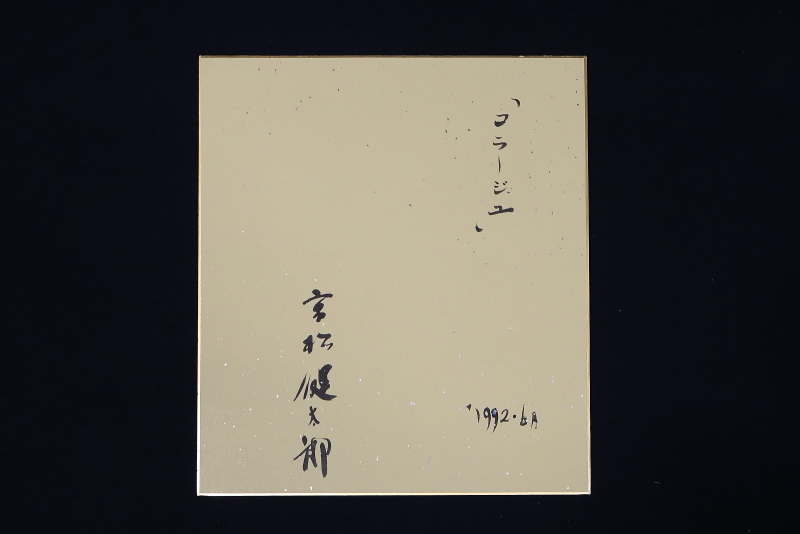 「コラージュ」
高松健太郎
'1992・